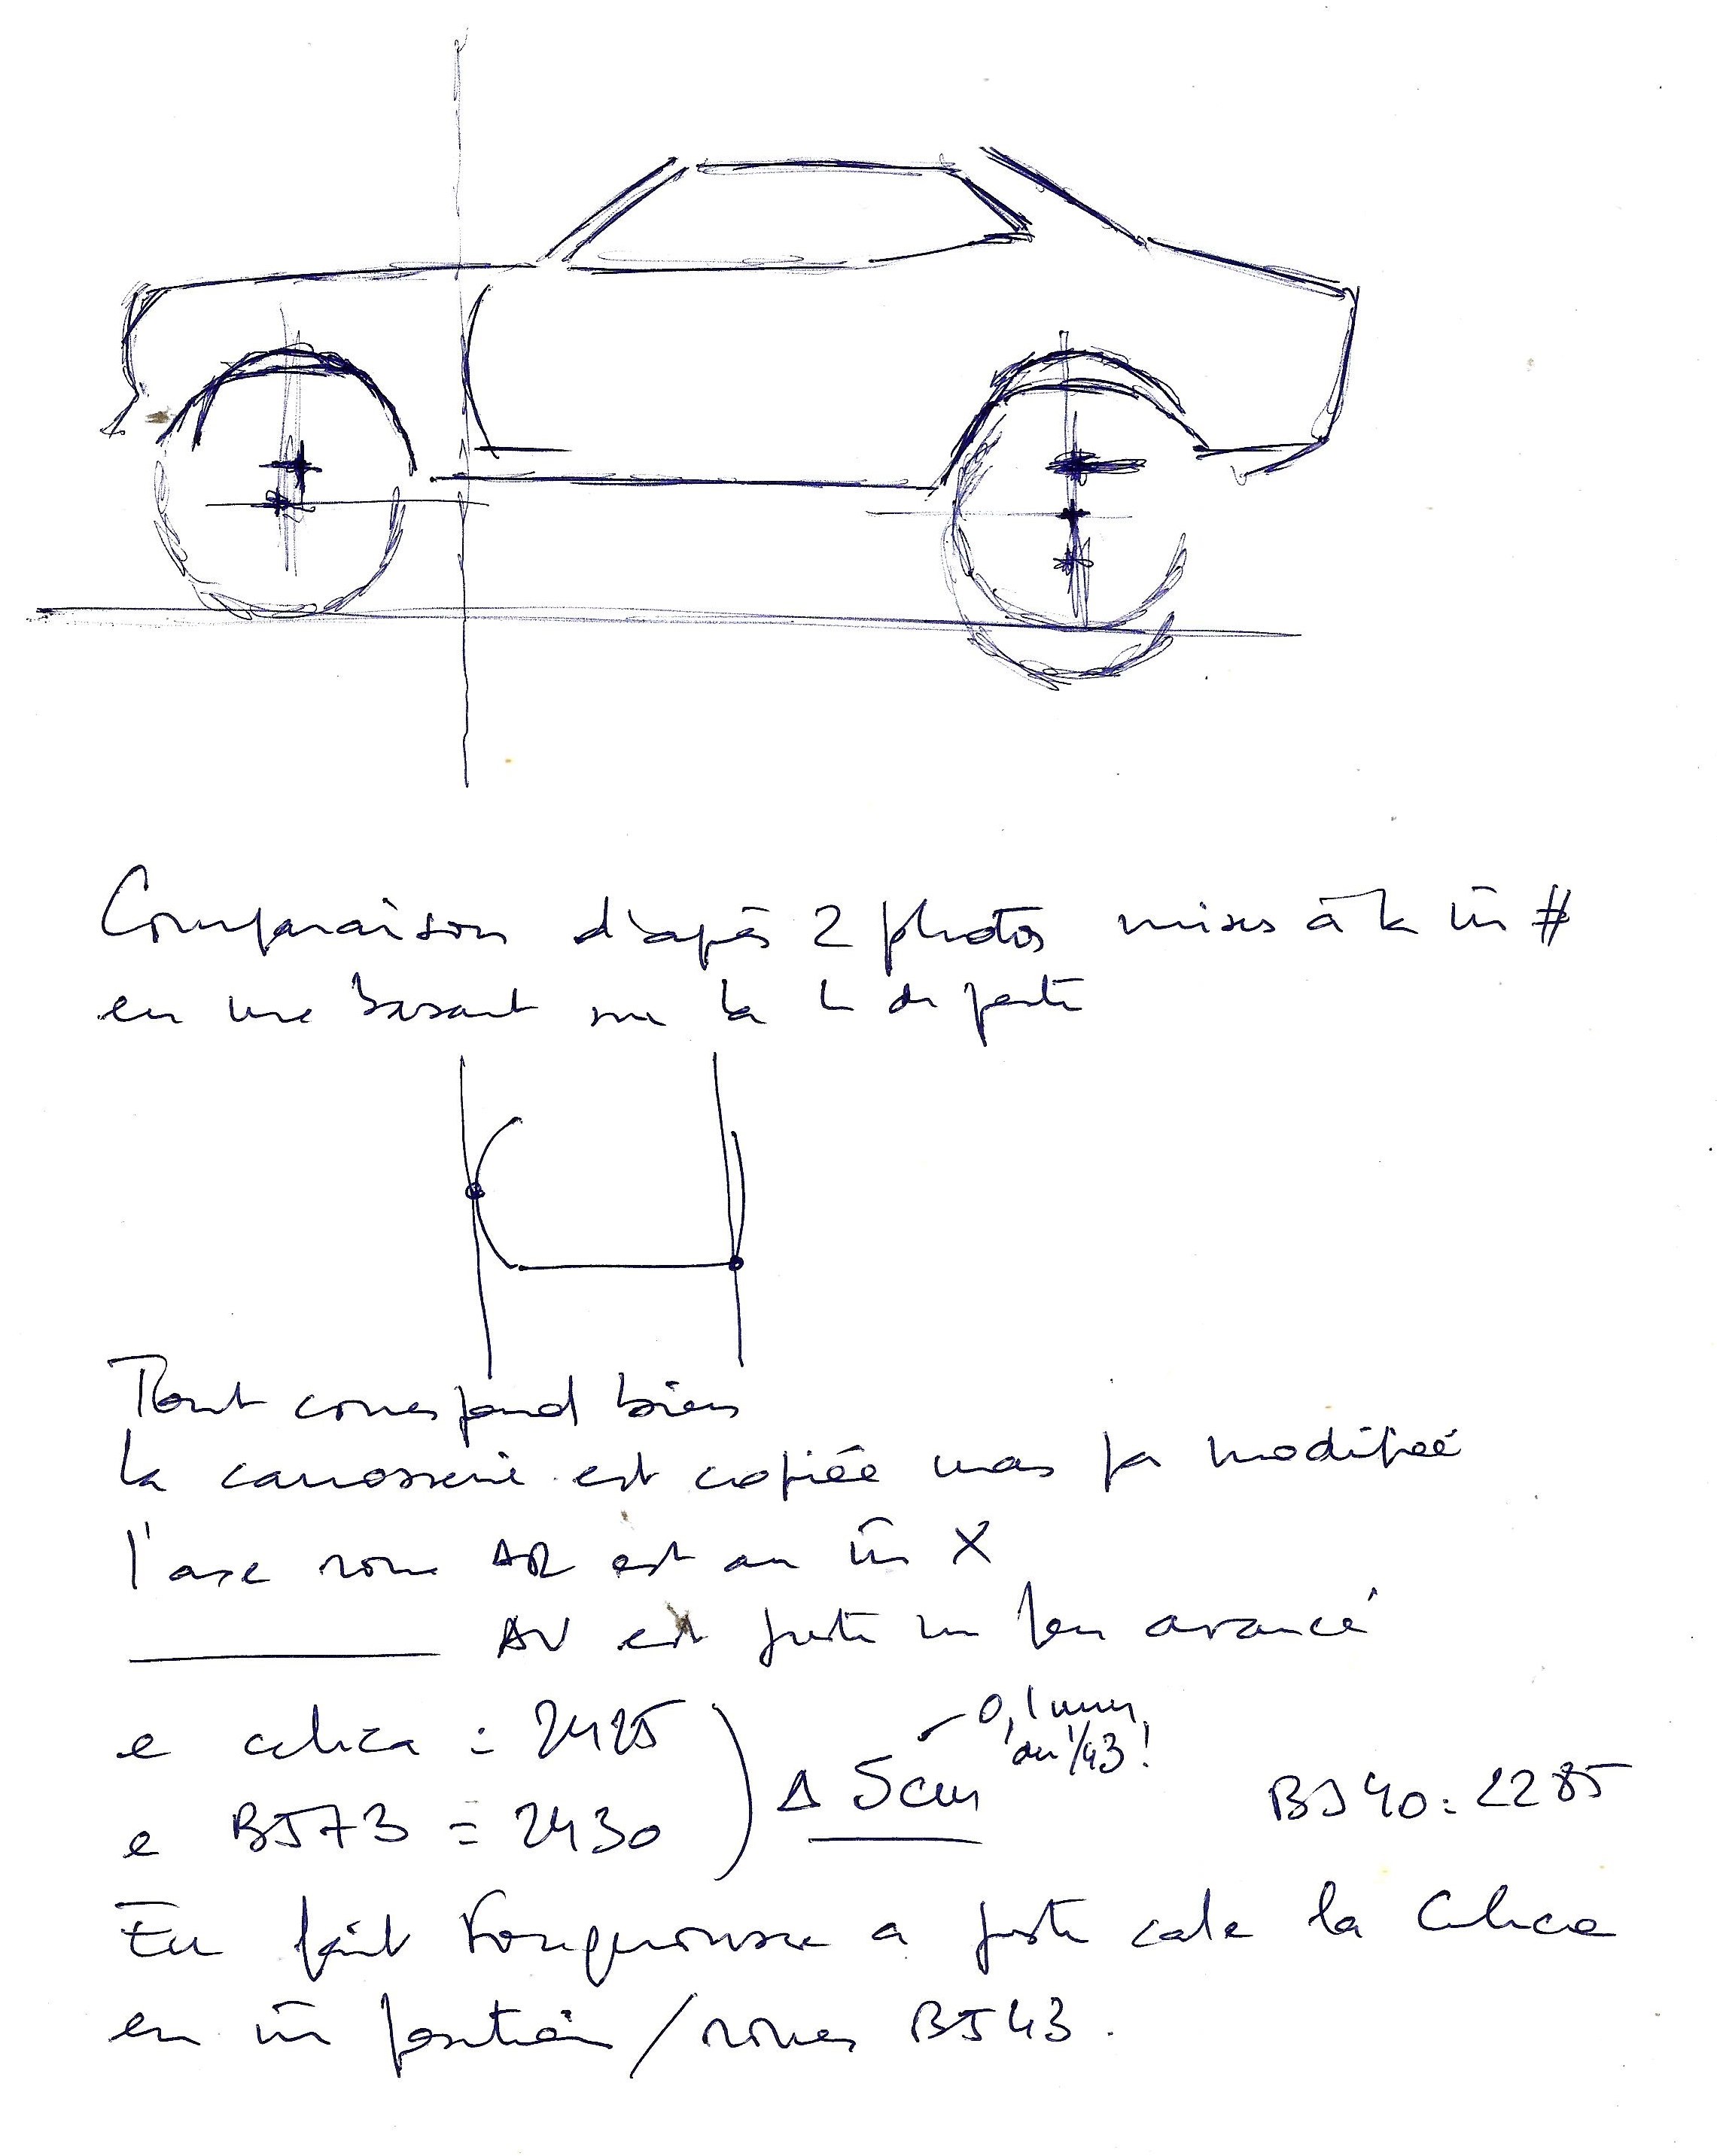 Comparaison d'après 2 photos mises à la m̄ #
en me basant sur la L de porte
Tout correspond bien
la carrosserie est copiée mais pa modifiée
l'axe roue AR est au m̄ X
AV est juste un peu avancé
0,1 mm
au 1/43 !
e celica = 2425
Δ 5cm
e BJ73 = 2430
BJ40 : 2285
En fait Fougerousse a juste cale la Celica
en m̄ position / roues BJ43.